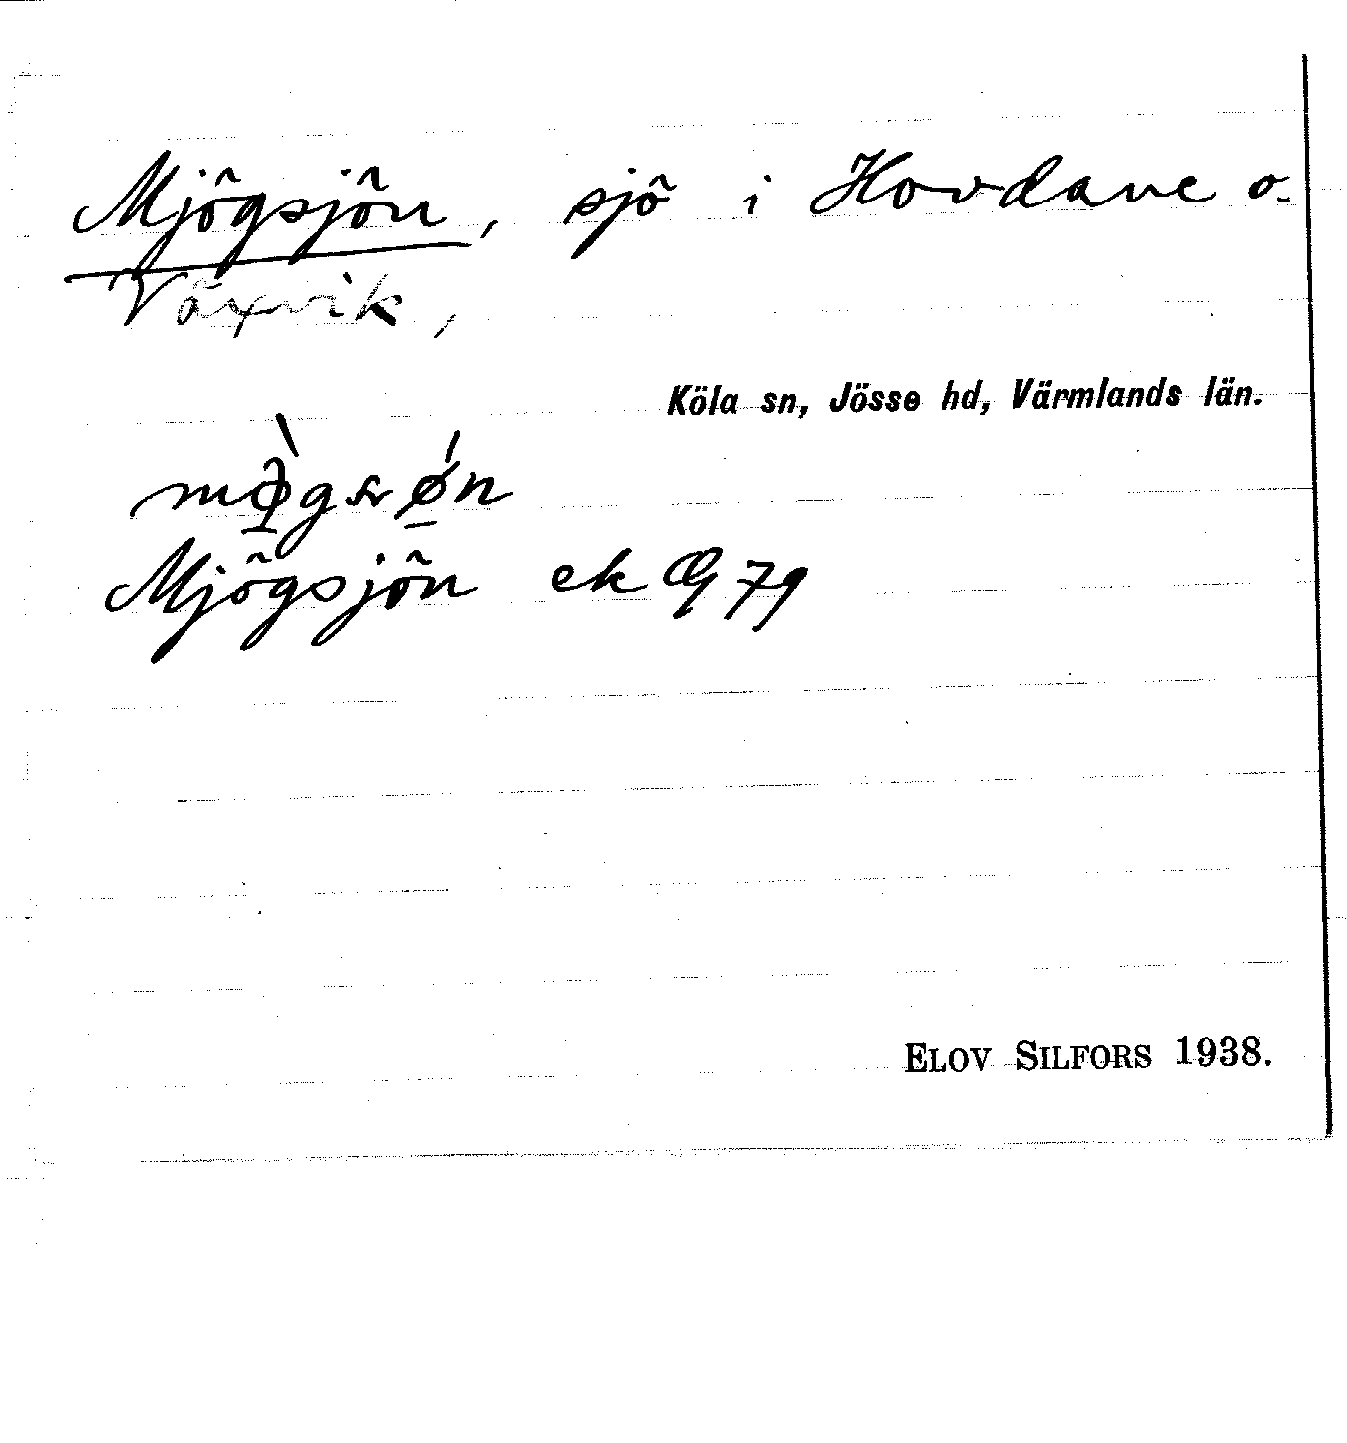 Mjögsjön, sjö i Hovdane o.
Växvik,
Köla sn, Jösse hd, Värmlands län.
Mjögsjön ek
ELOV SILFORS 1938.